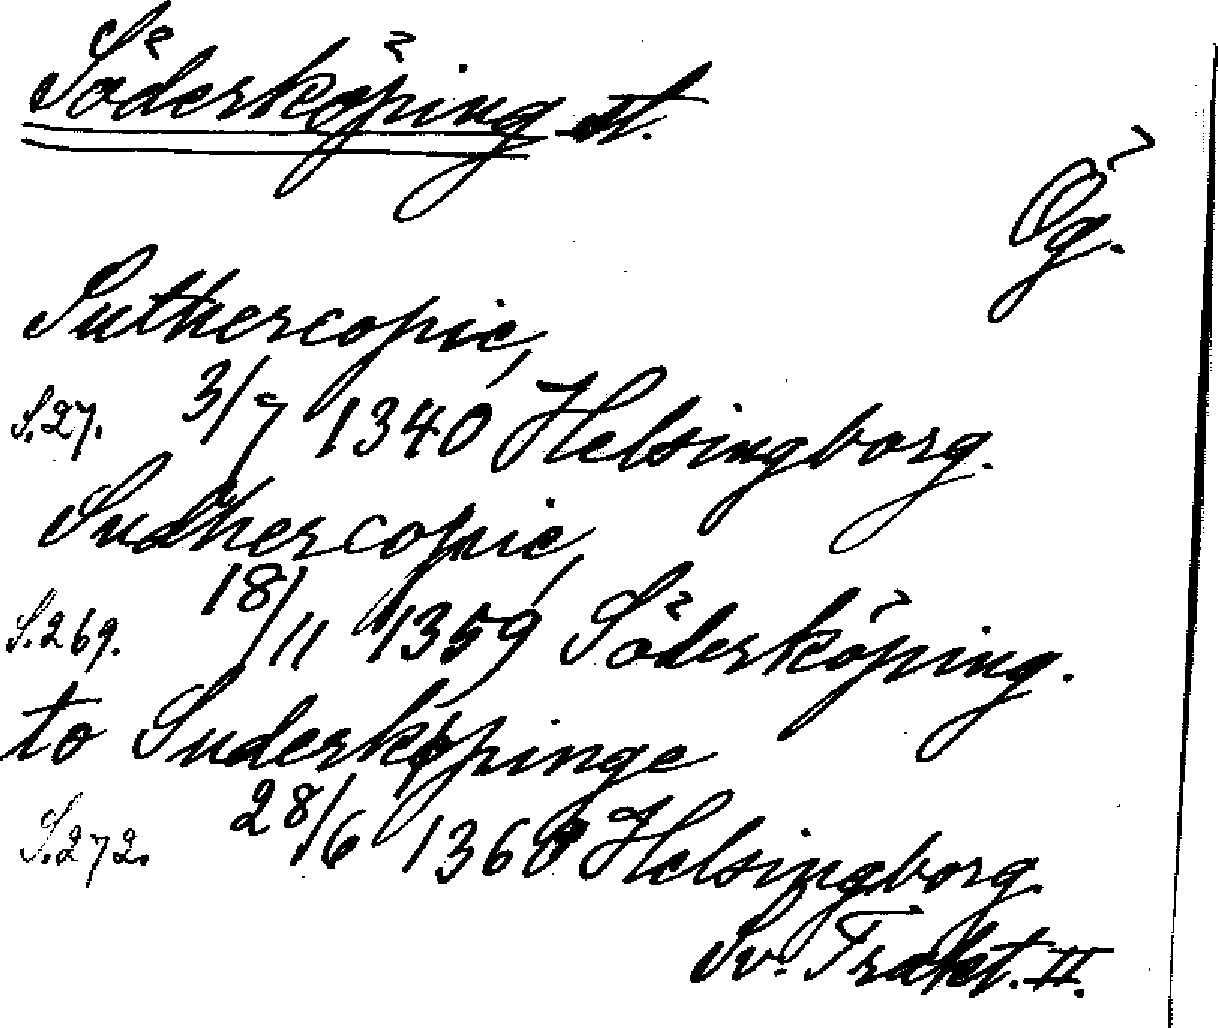 Söderköping st.
Ög.
Suthercopie,
S. 27. 3/7 1340 Helsingborg.
Sudhercopie,
S. 269. 18/11 1359, Söderköping.
to Suderköpinge
S. 272. 28/6 1360 Helsingborg.
Sv. Trakt. II.